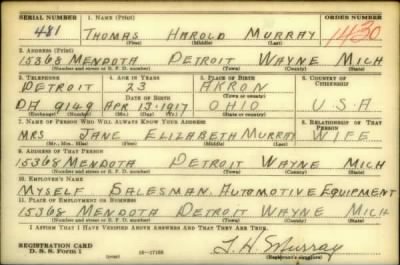 SERIAL NUMBER 1. NAME (Print) ORDER NUMBER
481 THOMAS HAROLD MURRAY 1430
(First) (Middle) (Last)
2. ADDRESS (Print)
15368 MENDOTA DETROIT WAYNE MICH
(Number and street or R. F. D. number) (Town) (County) (State)
3. TELEPHONE 4. AGE IN YEARS 5. PLACE OF BIRTH 6. COUNTRY OF CITIZENSHIP
DETROIT 23 AKRON
DATE OF BIRTH (Town or county)
DA 9149 APR 13-1917 OHIO U.S.A
(Exchange) (Number) (Mo.) (Day) (Yr.) (State or country)
7. NAME OF PERSON WHO WILL ALWAYS KNOW YOUR ADDRESS 8. RELATIONSHIP OF THAT PERSON
MRS JANE ELIZABETH MURRAY WIFE
(Mr., Mrs., Miss) (First) (Middle) (Last)
9. ADDRESS OF THAT PERSON
15368 MENDOTA DETROIT WAYNE MICH
(Number and street or R. F. D. number) (Town) (County) (State)
10. EMPLOYER'S NAME
MYSELF SALESMAN. AUTOMOTIVE EQUIPMENT
11. PLACE OF EMPLOYMENT OR BUSINESS
15368 MENDOTA DETROIT WAYNE MICH
(Number and street or R. F. D. number) (Town) (County) (State)
I AFFIRM THAT I HAVE VERIFIED ABOVE ANSWERS AND THAT THEY ARE TRUE.
REGISTRATION CARD
D. S. S. Form 1 16—17105 T. H. Murray
(Registrant's signature)